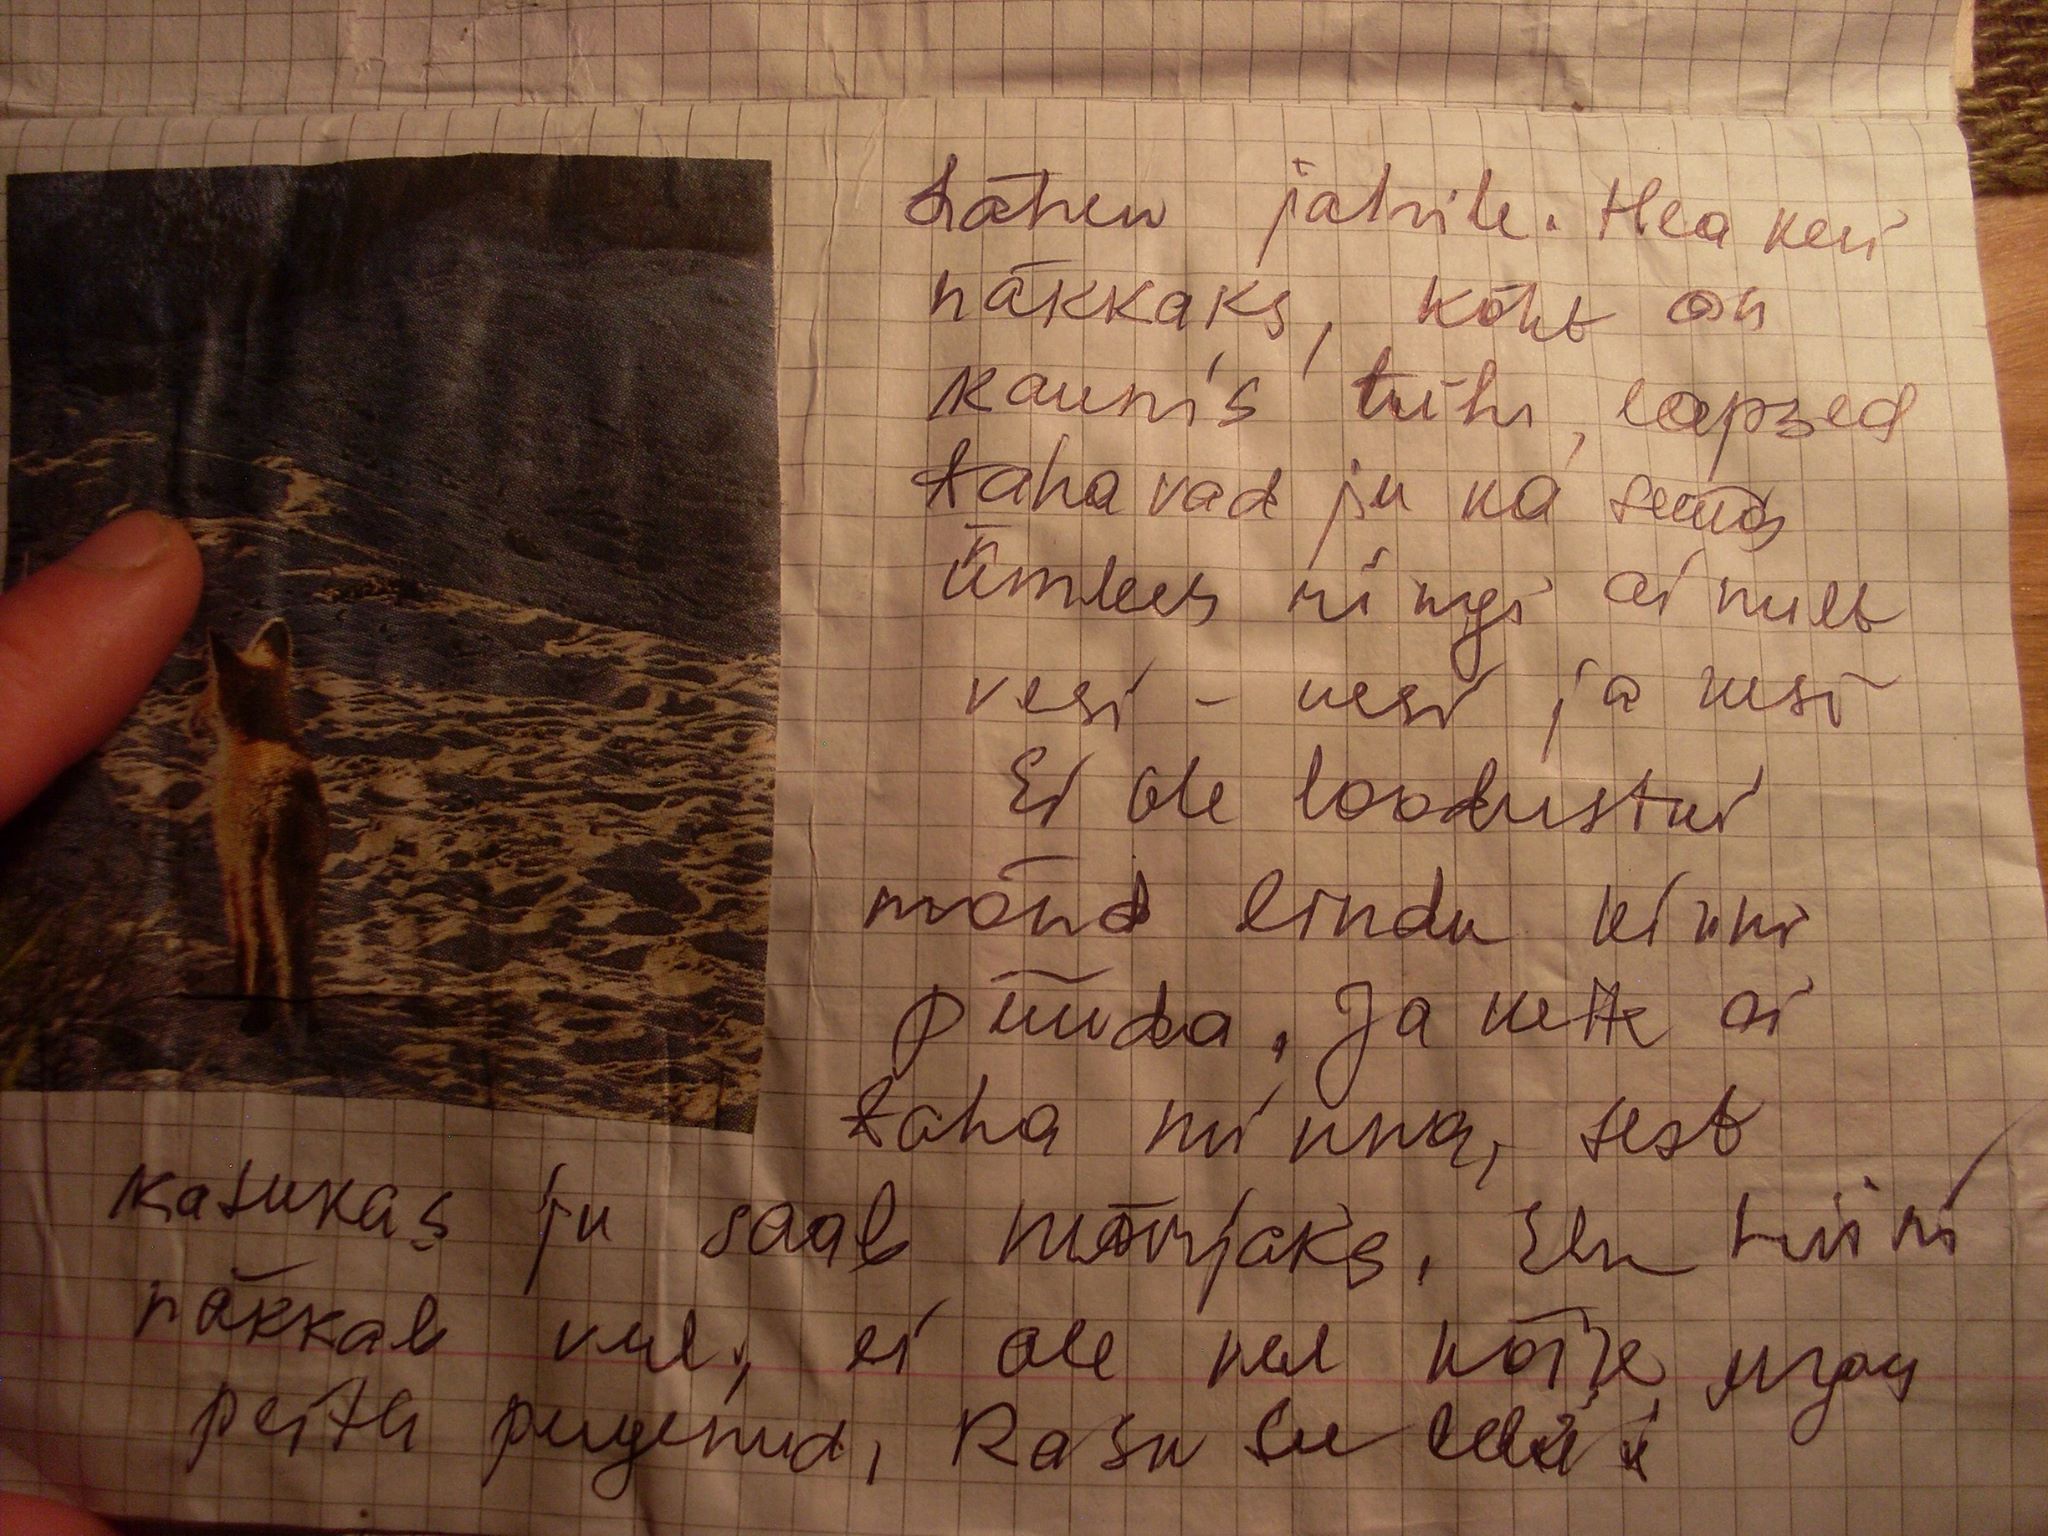 Lähen jahile. Hea keri
näkkaks, kõht on
kaunis tühi, lapsed
tahavad ju ka süüa
Ümber ringi ainult
vesi - vesi ja vesi
Ei ole loodustki
mõnd lindu kinni
püüda. Ja vette ei
taha minna, sest
kasukas ju saab märjaks.
näkkab veel, ei ole veel kõik urgas
peitu pugenud, Raske see elu